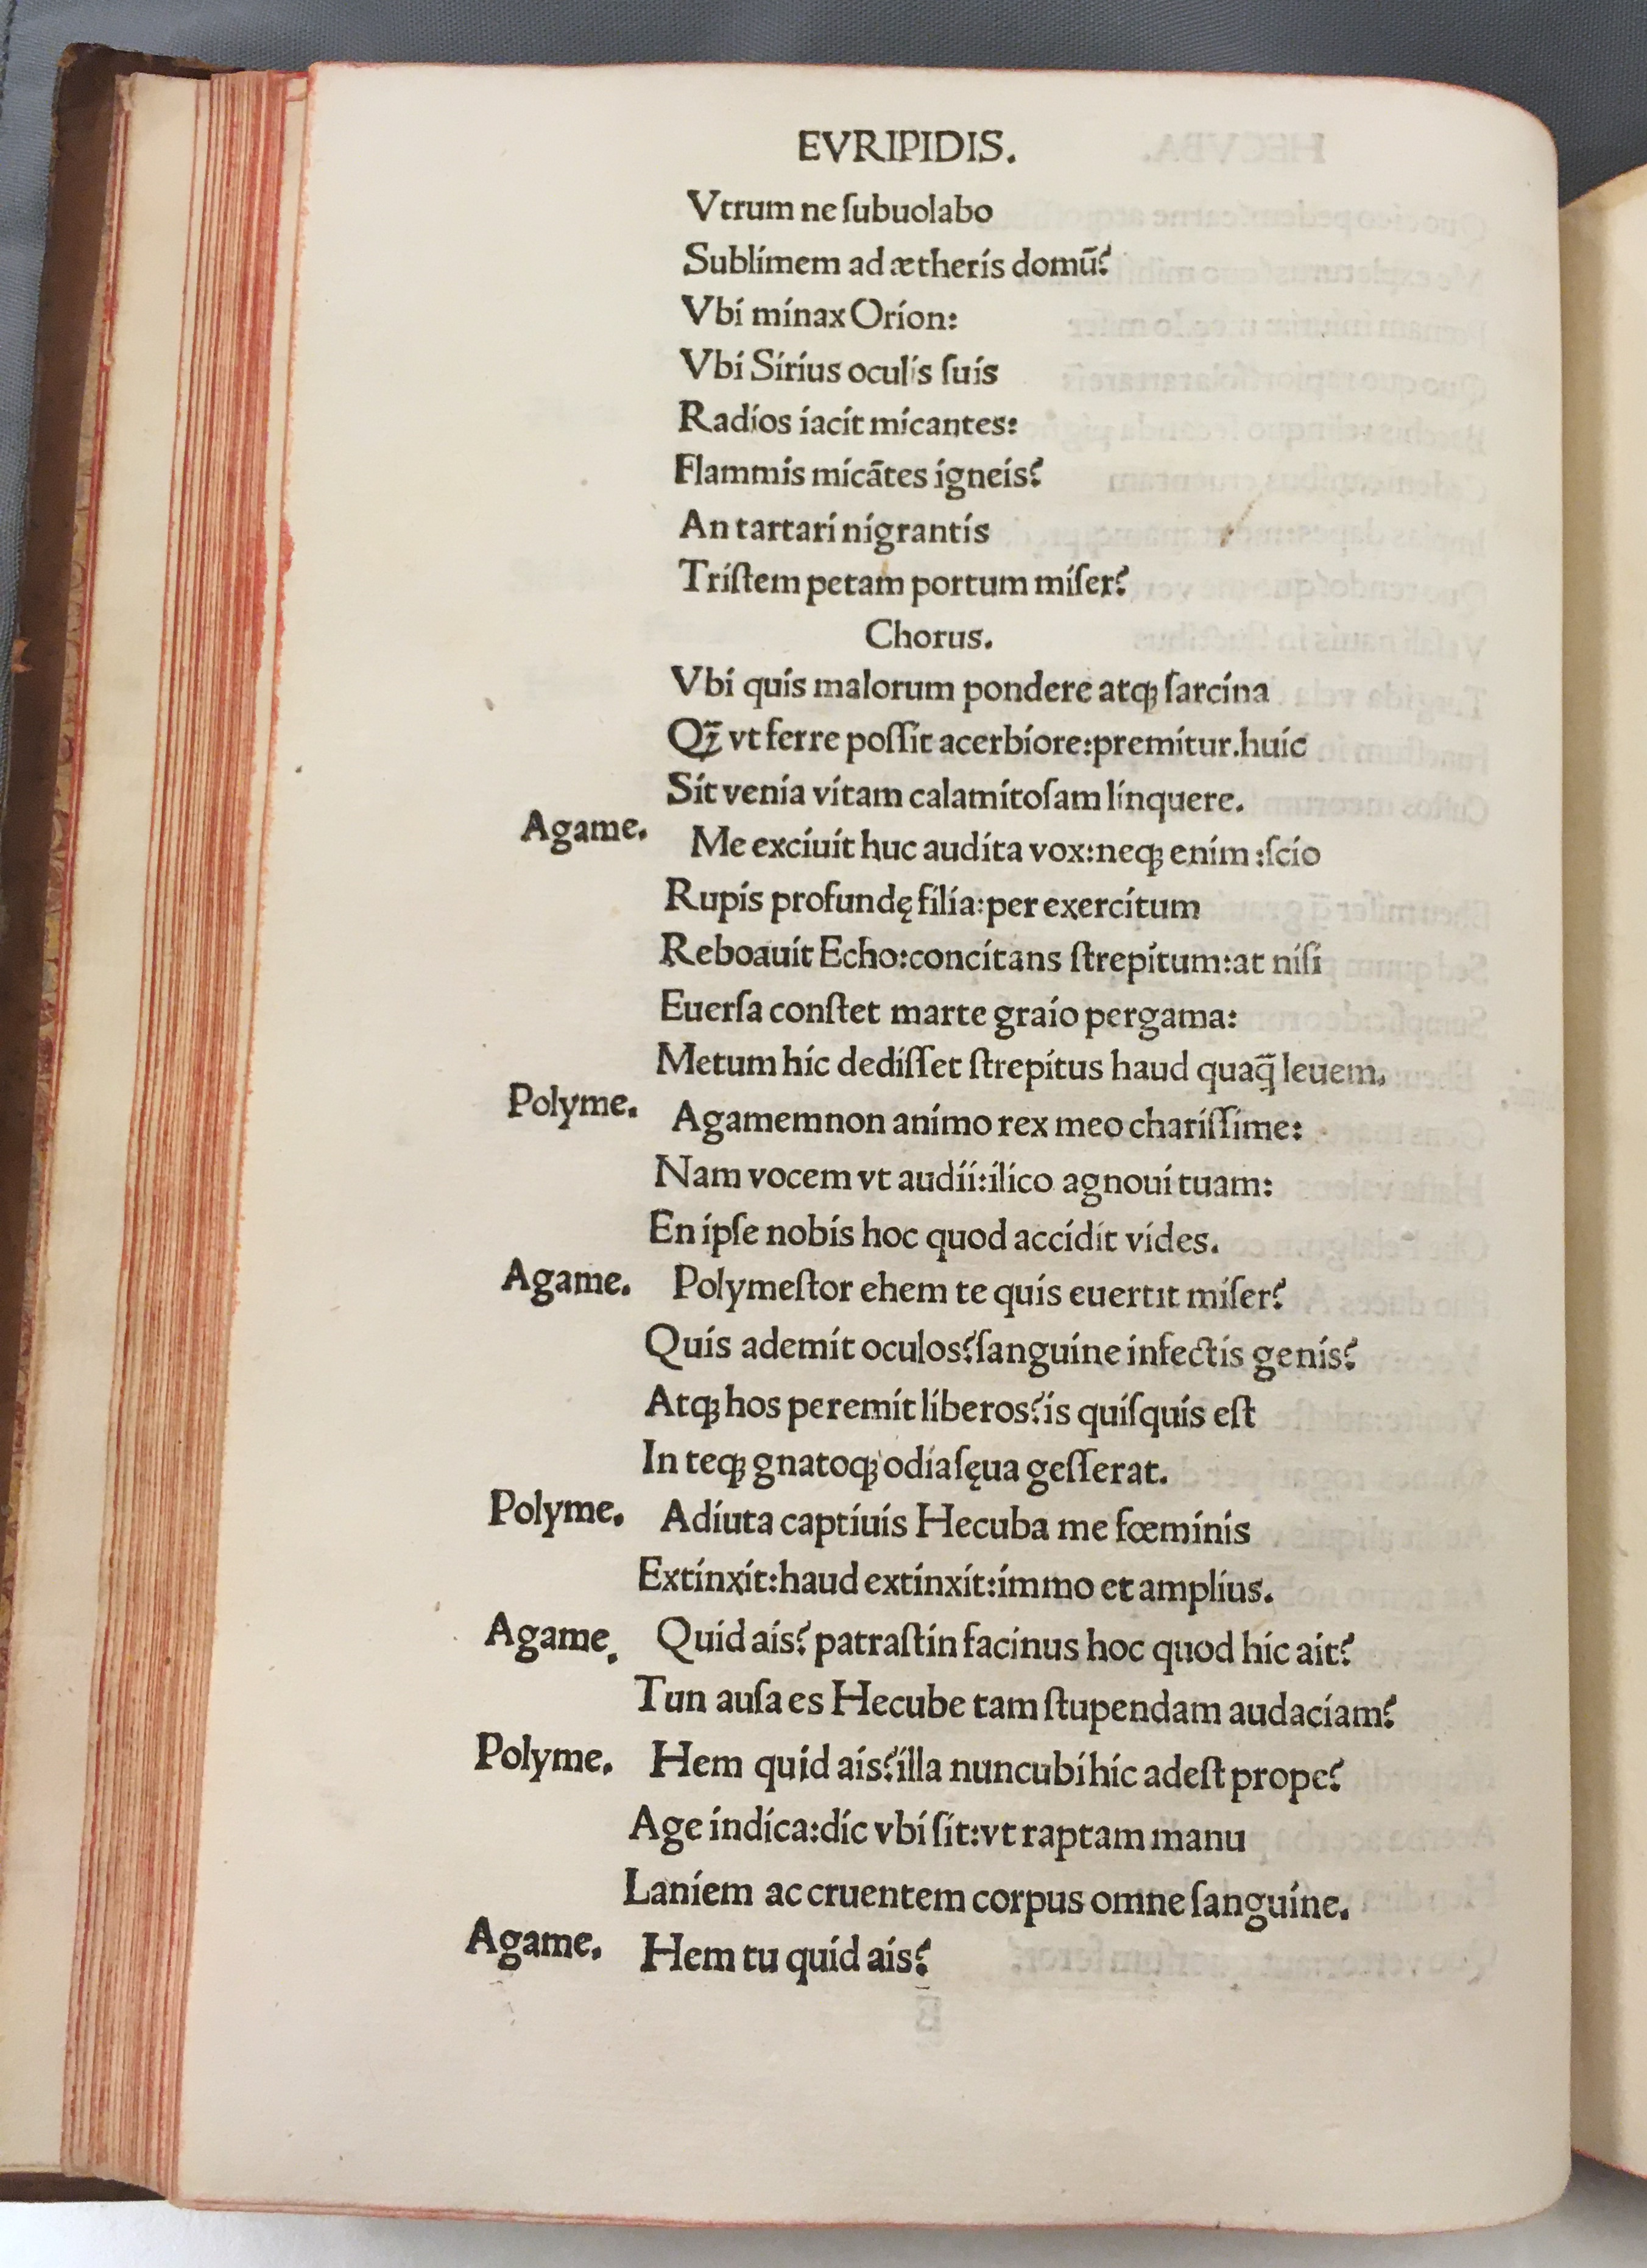 EVRIPIDIS.
Vtrum ne ſubuolabo
Sublimem ad ætheris domū?
Vbi minax Orion:
Vbi Sirius oculis ſuis
Radios iacit micantes:
Flammis micātes igneis?
An tartari nigrantis
Triſtem petam portum miſer?
Chorus.
Vbi quis malorum pondere atqꝫ ſarcina
Qꝫ̄ vt ferre poſſit acerbiore:premitur.huic
Sit venia vitam calamitoſam linquere.
Agame. Me exciuit huc audita vox:neqꝫ enim :ſcio
Rupis profundę filia:per exercitum
Reboauit Echo:concitans ſtrepitum:at niſi
Euerſa conſtet marte graio pergama:
Metum hic dediſſet ſtrepitus haud quaq̄ leuem.
Polyme. Agamemnon animo rex meo chariſſime:
Nam vocem vt audii:ilico agnoui tuam:
En ipſe nobis hoc quod accidit vides.
Agame. Polymeſtor ehem te quis euertit miſer?
Quis ademit oculos?ſanguine infectis genis?
Atqꝫ hos peremit liberos?is quiſquis eſt
In teqꝫ gnatoqꝫ odia ſęua geſſerat.
Polyme. Adiuta captiuis Hecuba me fœminis
Extinxit:haud extinxit:immo et amplius.
Agame. Quid ais? patraſtin facinus hoc quod hic ait?
Tun auſa es Hecube tam ſtupendam audaciam?
Polyme. Hem quid ais?illa nuncubi hic adeſt prope?
Age indica:dic vbi ſit:vt raptam manu
Laniem ac cruentem corpus omne ſanguine.
Agame. Hem tu quid ais?